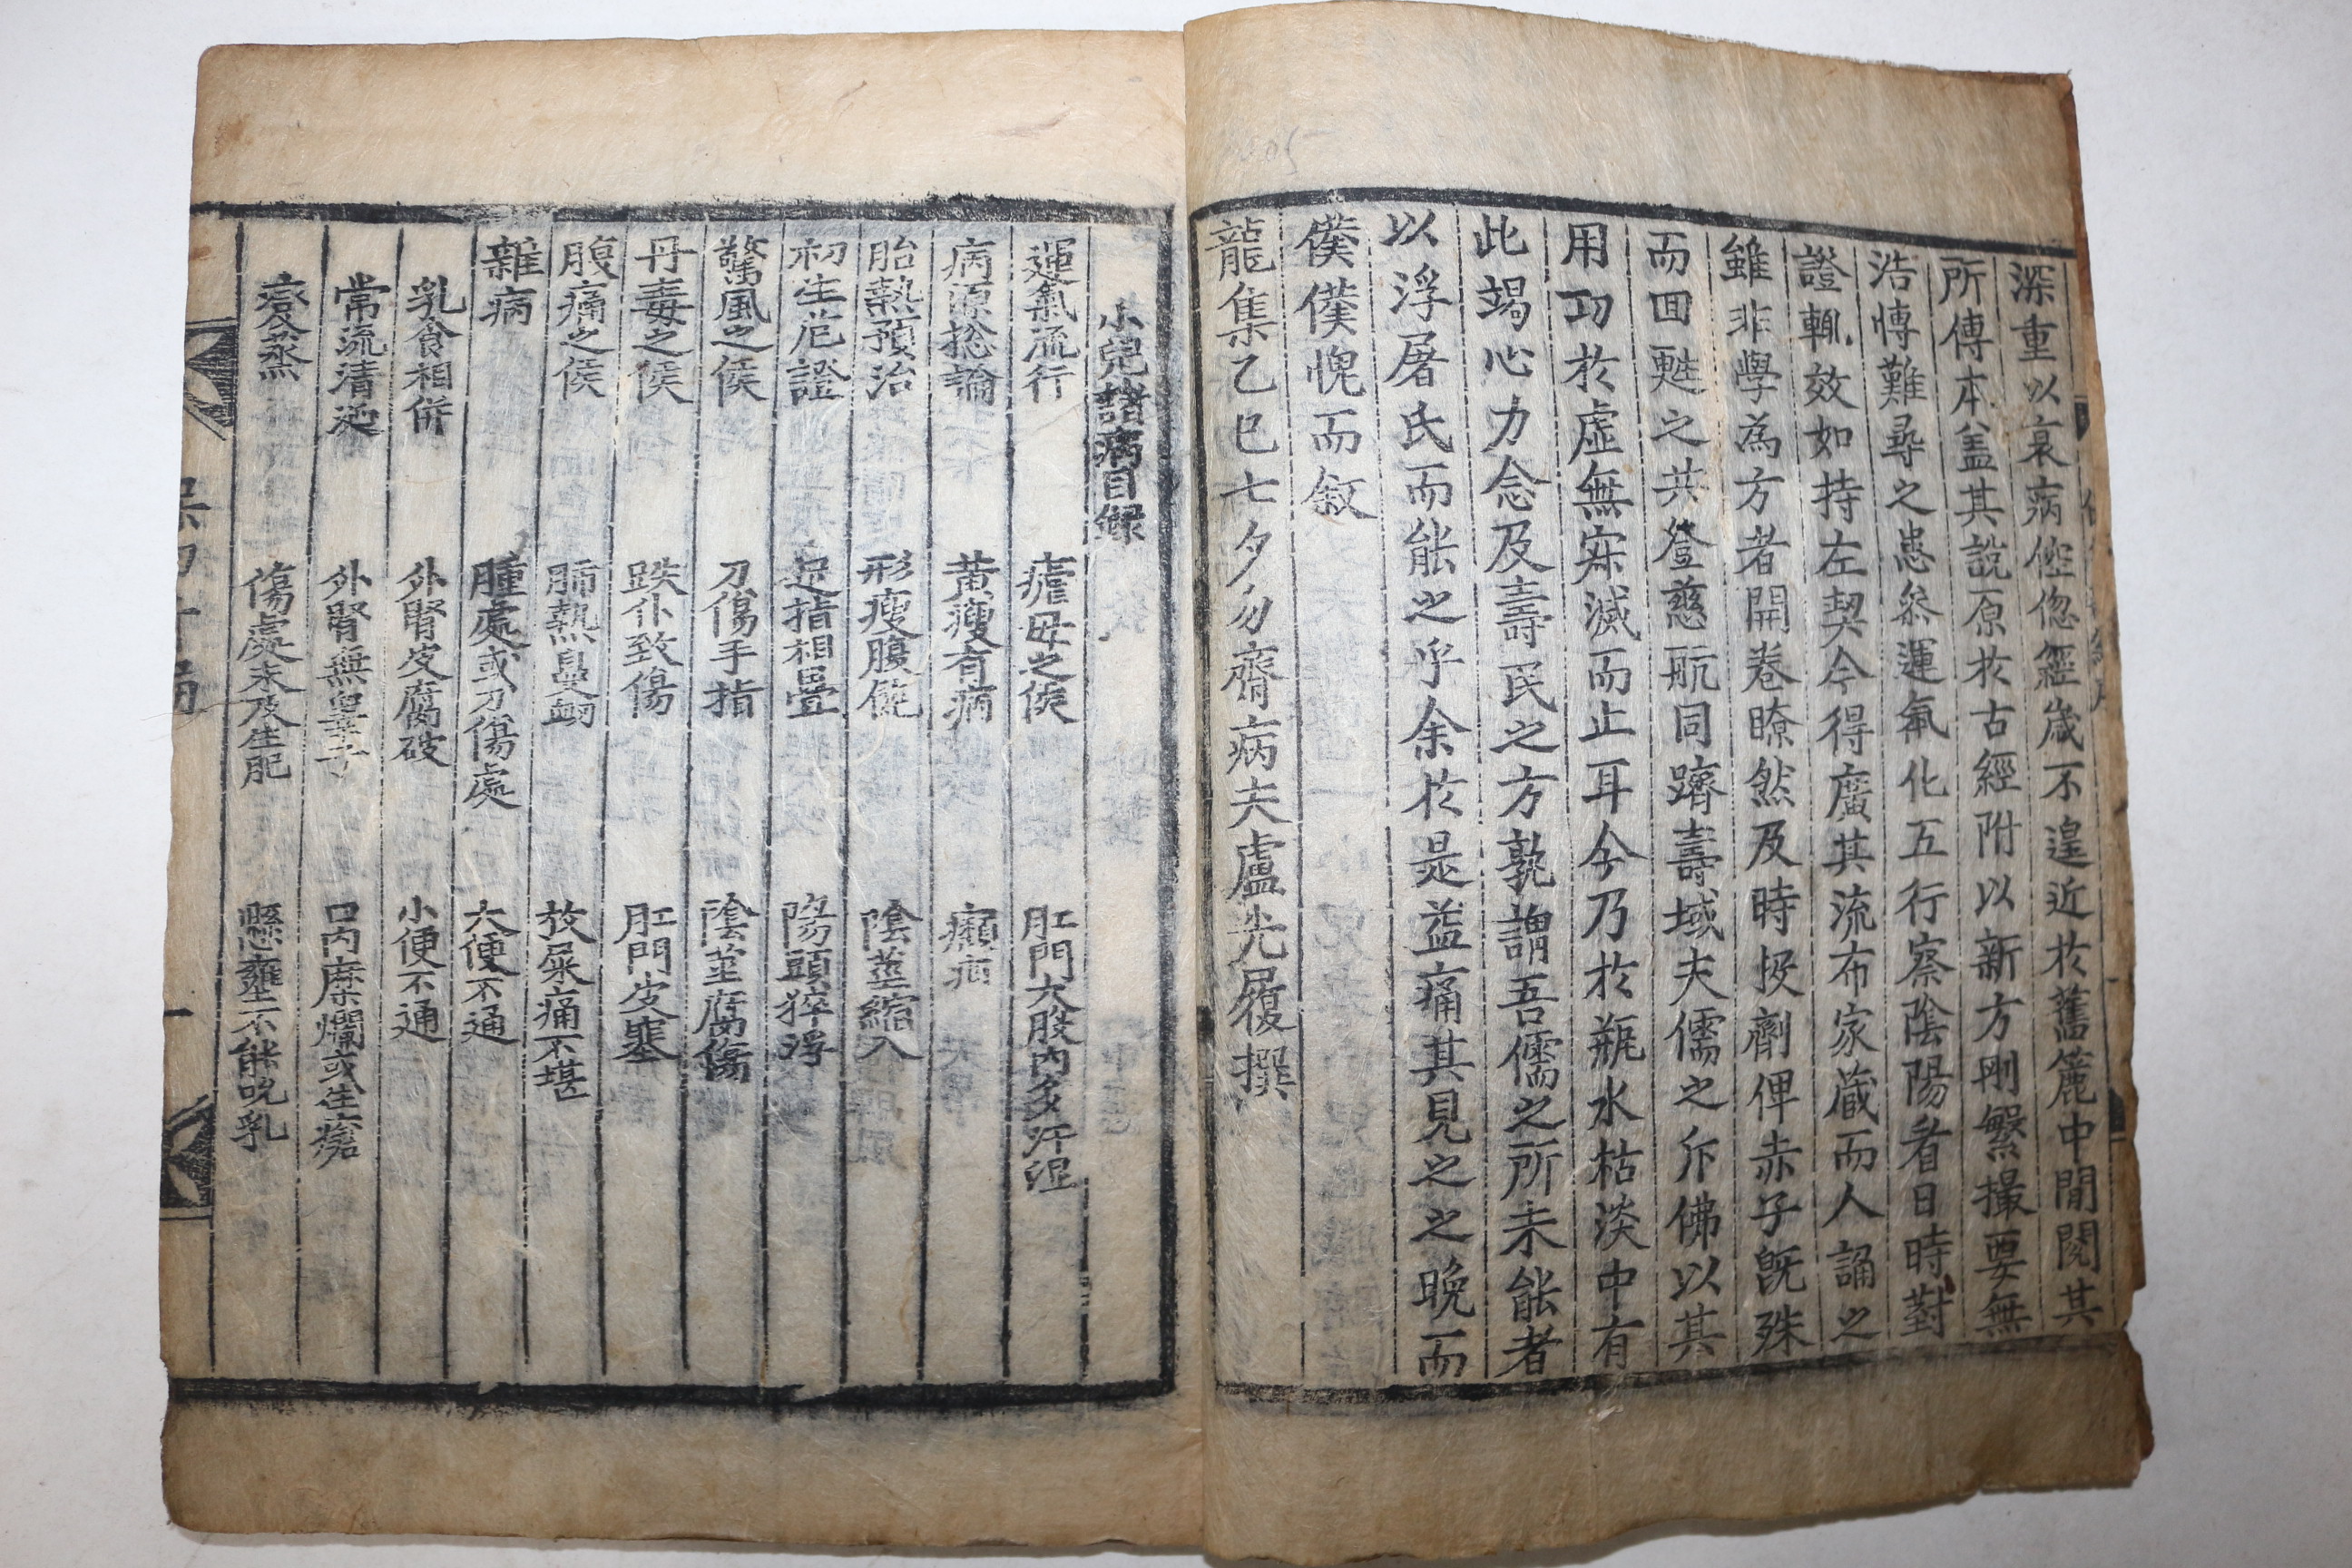 深重以哀病倥偬經歲不遑近於舊簏中閒閱其
所傳本盖其說原於古經附以新方刪繁撮要無
浩慱難尋之患叅運氣化五行察陰陽看日時對
證輒效如持左契今得廣其流布家藏而人誦之
雖非學為方者開卷瞭然及時投劑俾赤子旣殊
而囬甦之共登慈航同躋壽域夫儒之斥佛以其
用功於虛無寂滅而止耳今乃於瓶水枯淡中有
此竭心力念及壽民之方孰謂吾儒之所未能者
以浮屠氏而能之乎余於是益痛其見之之晚而
僕僕愧而敘
龍集乙巳七夕勿齋病夫盧光履撰
小兒諸病目録
運氣流行 瘧母之候 肛門大股內多汗湿
病源捴論 黃瘦有病 癲疝
胎熱預治 形瘦腹 陰莖縮入
初生芒證 足指相疊 陽頭猝浮
驚風之候 刀傷手指 陰莖腐傷
丹毒之候 跌仆致傷 肛門皮塞
腹痛之候 肺熱鼻衂 放屎痛不堪
雜病 腫處或刀傷處 大便不通
乳食相倂 外腎皮腐破 小便不通
常流清涎 外腎無睾子 口內糜爛或生瘡
傷處未及生肥 懸壅不能吮乳